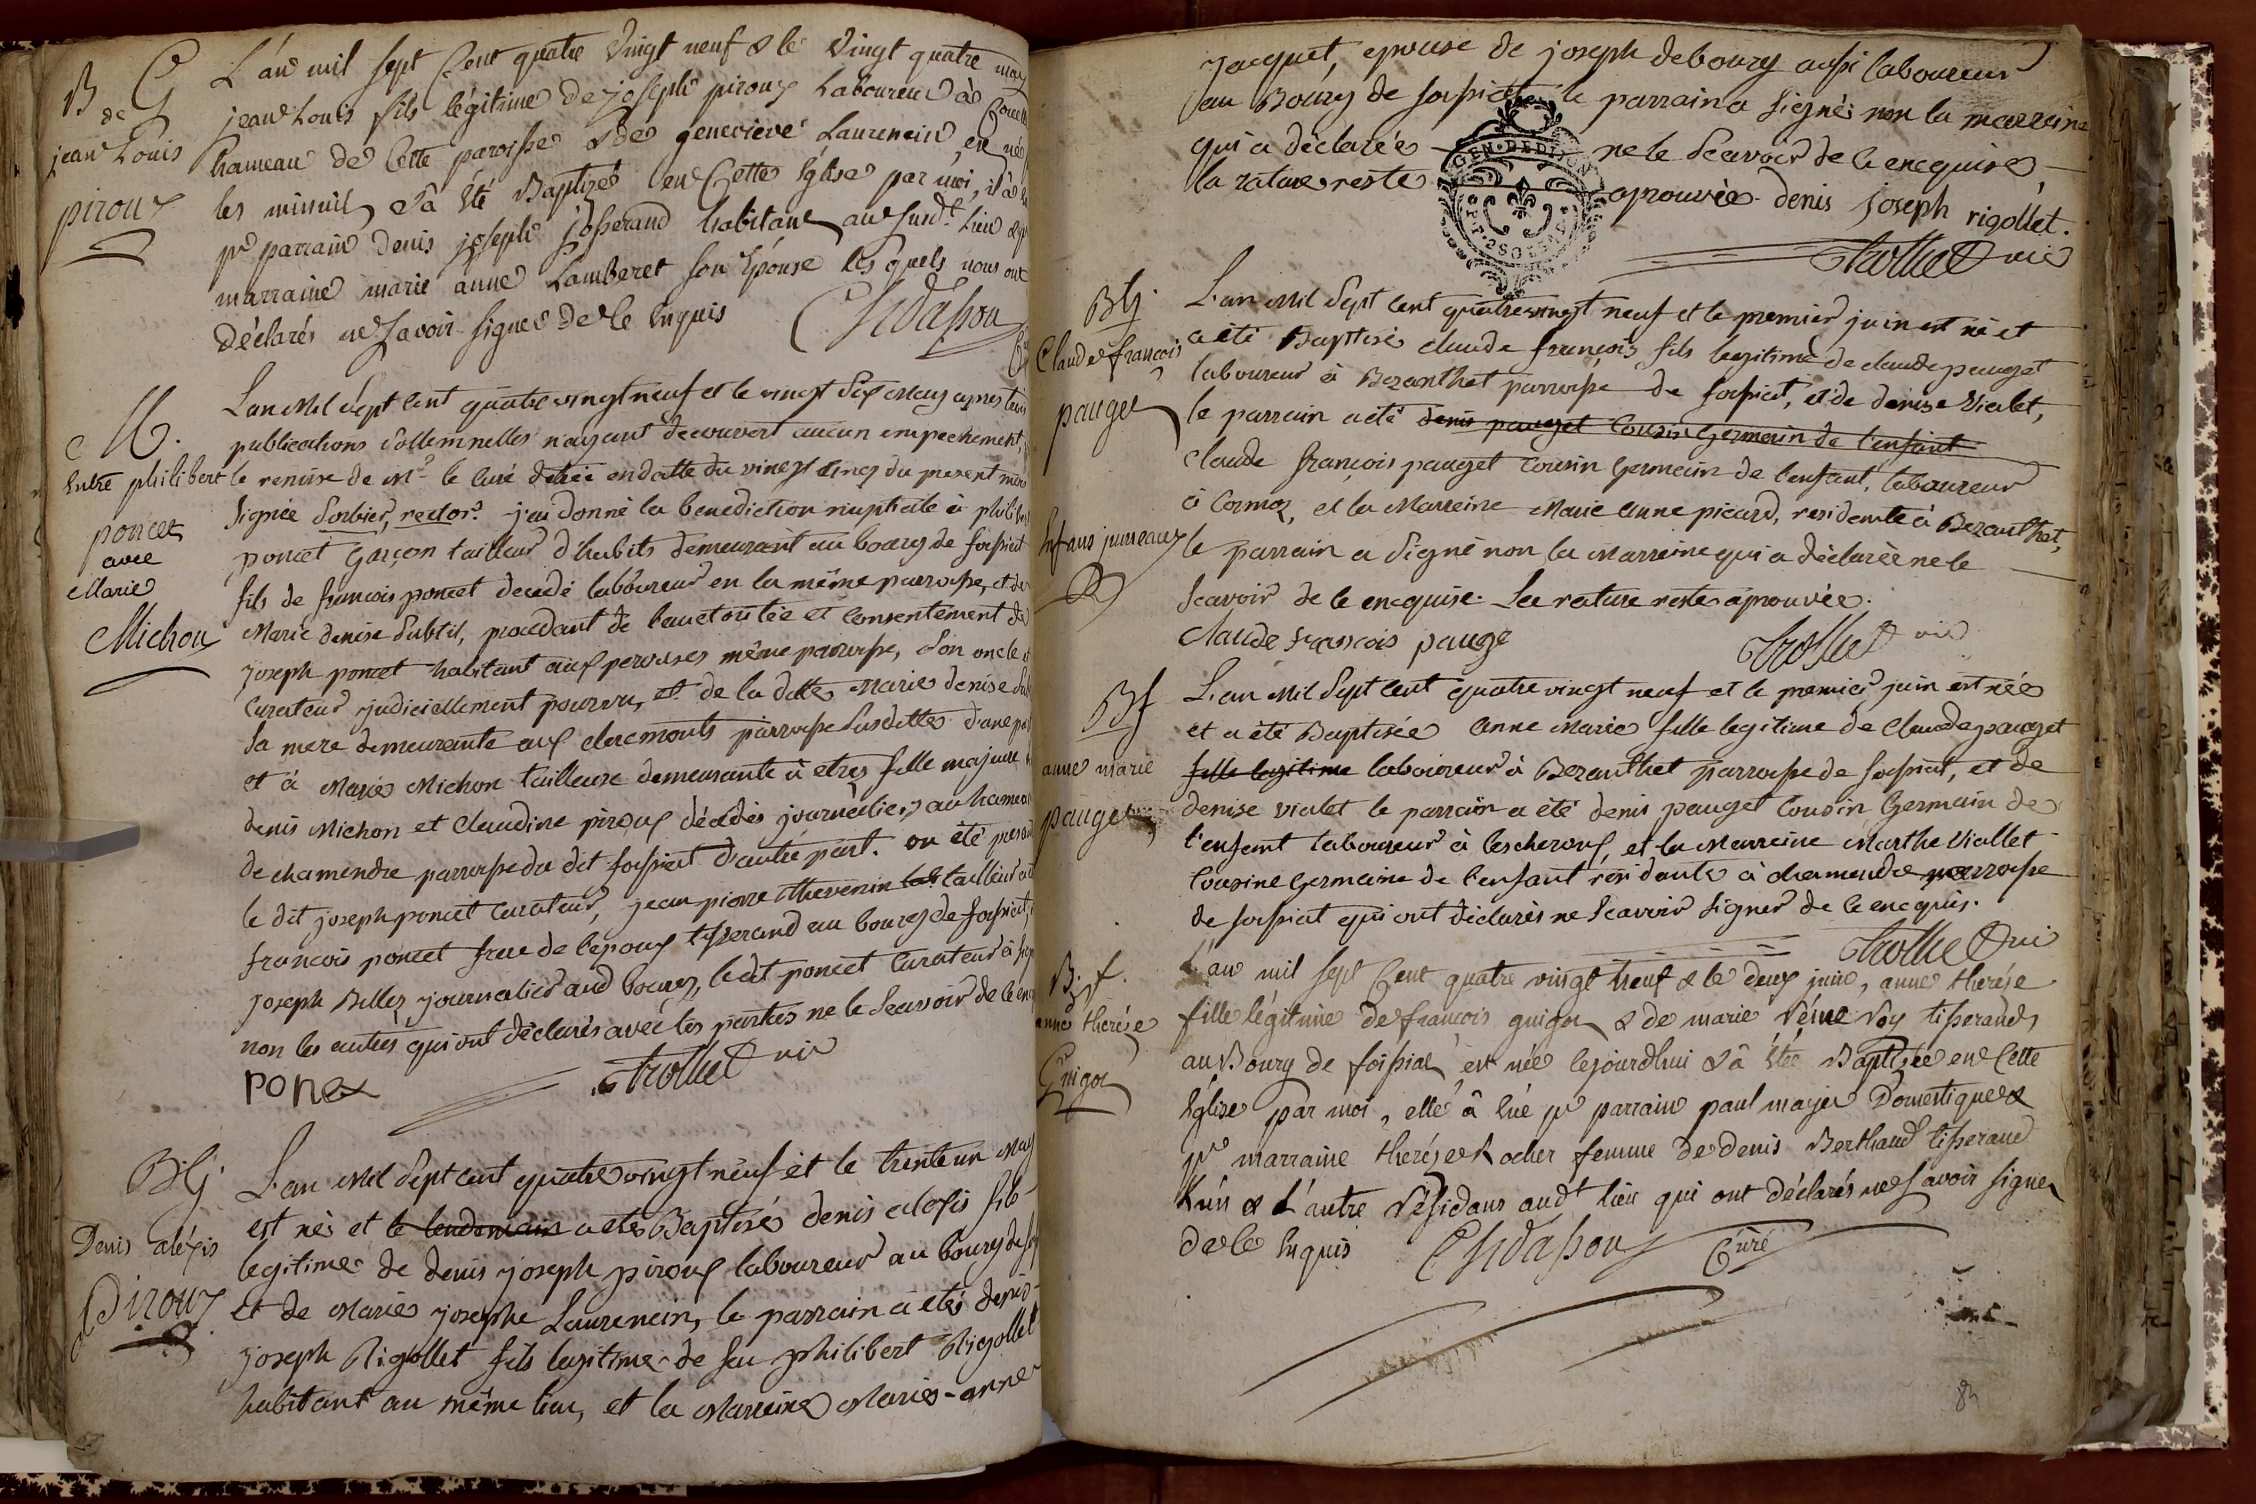 B G
de
jean Louis
piroux
L'an mil sept Cent quatre vingt neuf & le vingt quatre may
jean Louis fils légitime de joseph piroux Laboureur à
hameau de Cette paroisse & de genevieve Laurencin, est né
les minuit, & a été Baptizé en Cette Eglise par moi, il a
pr parrain denis joseph josserand habitant au susdt. Lieu &
marraine marie anne Lamberet son Epouse les quels nous ont
déclarés ne savoir signer de ce Enquis
M.
Entre philibert
poncet
avec
Marie
Michon
L'an Mil Sept Cent quatre vingt neuf et le vingt Six May apres trois
publications Sollemnelles n'ayant decouvert aucun empechement,
le remise de Mr le curé en datte du vingt cinq du present mois
Signée Sorbier, rector. j'ai donné la benediction nuptiale à philibert
poncet garçon tailleur d'habits demeurant au bourg de foissiat
fils de francois poncet decedé laboureur en la même parroisse, et de
Marie denise Subtil, procedant de l'auctoritée et consentement de
joseph poncet habitant aux perouses même parroisse, son oncle et
Curateur judiciellement pourvu, et de la ditte Marie denise
Sa mere demeurante aux claremonts parroisse Susditte d'une part
et à Marie Michon tailleuse demeurante à etres fille majeure
denis Michon et Claudine piroux décédés journaliers au hameau
de chamendre parroisse du dit foissiat d'autre part. on été presents
le dit joseph poncet curateur, jean pierre thevenin tailleur
francois poncet frere de l'epoux tisserand au bourg de foissiat,
joseph Billez journalier aud bourg, le dit poncet Curateur à
non les autres qui ont déclarés avec les parties ne le Scavoir de ce
ponet
trollliet vic
Bg
Denis aléxis
Piroux
L'an Mil Sept cent quatre vingt neuf et le trente un May
est né et le lendemain a eté Baptisé denis alexis fils
legitime de denis joseph piroux laboureur au bourg de
et de Marie josephe Laurencin, le parrain a eté denis
joseph Rigollet fils legitime de feu philibert Rigollet
habitant au même lieu, et la Marreine Marie-anne
jacquet, epouse de joseph debourg aussi laboureur
au Bourg de foissiat, le parrain a signé non la marreine
qui a déclarée ne le Scavoir de ce encquise,
la rature reste aprouvée. denis joseph rigollet.
GEN. DE DIJON
Bg.
Claude françois
pauget
Enfans jumeaux
L'an Mil Sept Cent quatre vingt neuf et le premier juin est né et
a été Baptisé claude françois fils legitime de claude pauget
laboureur à Bezanthet parroisse de foissiat, et de denise Vialet,
le parrain a été denis pauget Cousin Germain de l'enfant
claude françois pauget cousin Germain de l'enfant, laboureur
à Cormoz, et la Marreine Marie anne picard, residente à Bezanthet,
le parrain a Signé non la Marreine qui a déclarée ne le
Scavoir de ce encquise. La rature reste aprouvée.
claude francois pauge
Bf
anne marie
pauget
L'an Mil Sept Cent quatre vingt neuf et le premier juin est née
et a été Baptisée anne Marie fille legitime de Claude pauget
fille legitime laboureur à Bezanthet parroisse de foissiat, et de
denise vialet le parrain a été denis pauget Cousin Germain de
l'enfant laboureur à lescheroux, et la Marreine Marthe Viallet
Cousine Germaine de l'enfant residante à chamendre parroisse
de foissiat qui ont déclarés ne Scavoir Signer de ce encquis.
B. f.
anne therése
Guigot
L'an mil sept Cent quatre vingt neuf & le deux juin, anne therése
fille légitime de francois guigot & de marie Réine Roy tisserands
au Bourg de foissiat est née cejourdhui & a été Baptizée en Cette
Eglise par moi, elle à Eue pr parrain paul mayer Domestique &
pr marraine therése Rocher femme de denis Berthaud tisserand
l'un & L'autre Résidans audt lieu qui ont déclarés ne savoir signer
de ce Enquis Curé